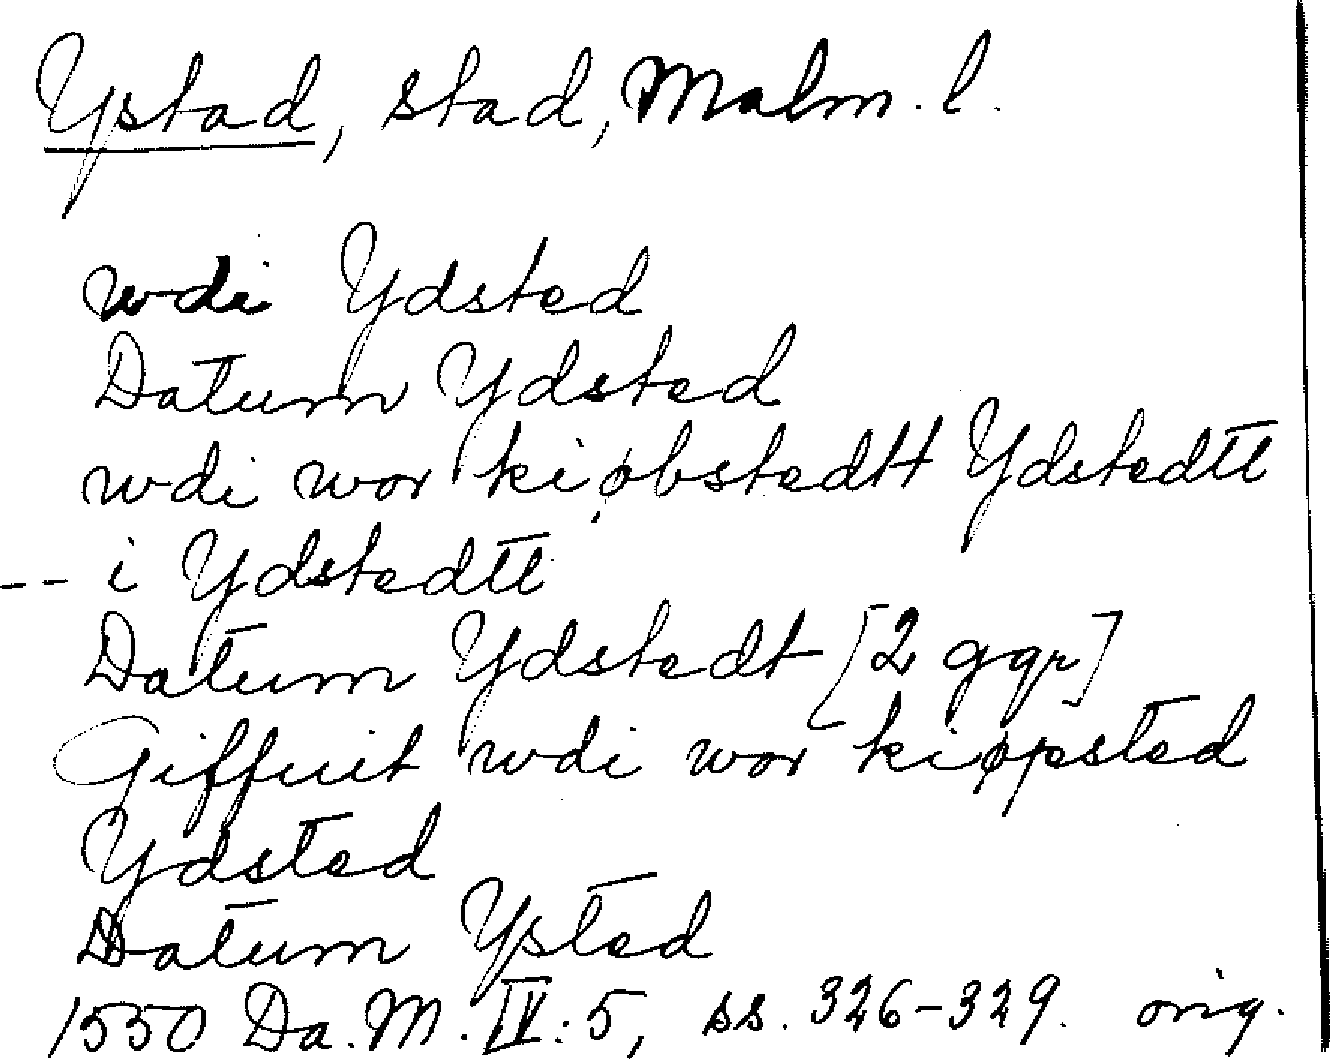 Ystad, stad, Malm. l.
wdi Ydsted
Datum Ydsted
wdi wor kiøbstedtt Ydstedtt
-- i Ydstedtt
Datum Ydstedt [2 ggr]
Giffuit wdi wor kiøpsted
Ydsted
Datum Ysted
1550 Da. M. IV: 5, ss. 326-329. orig.